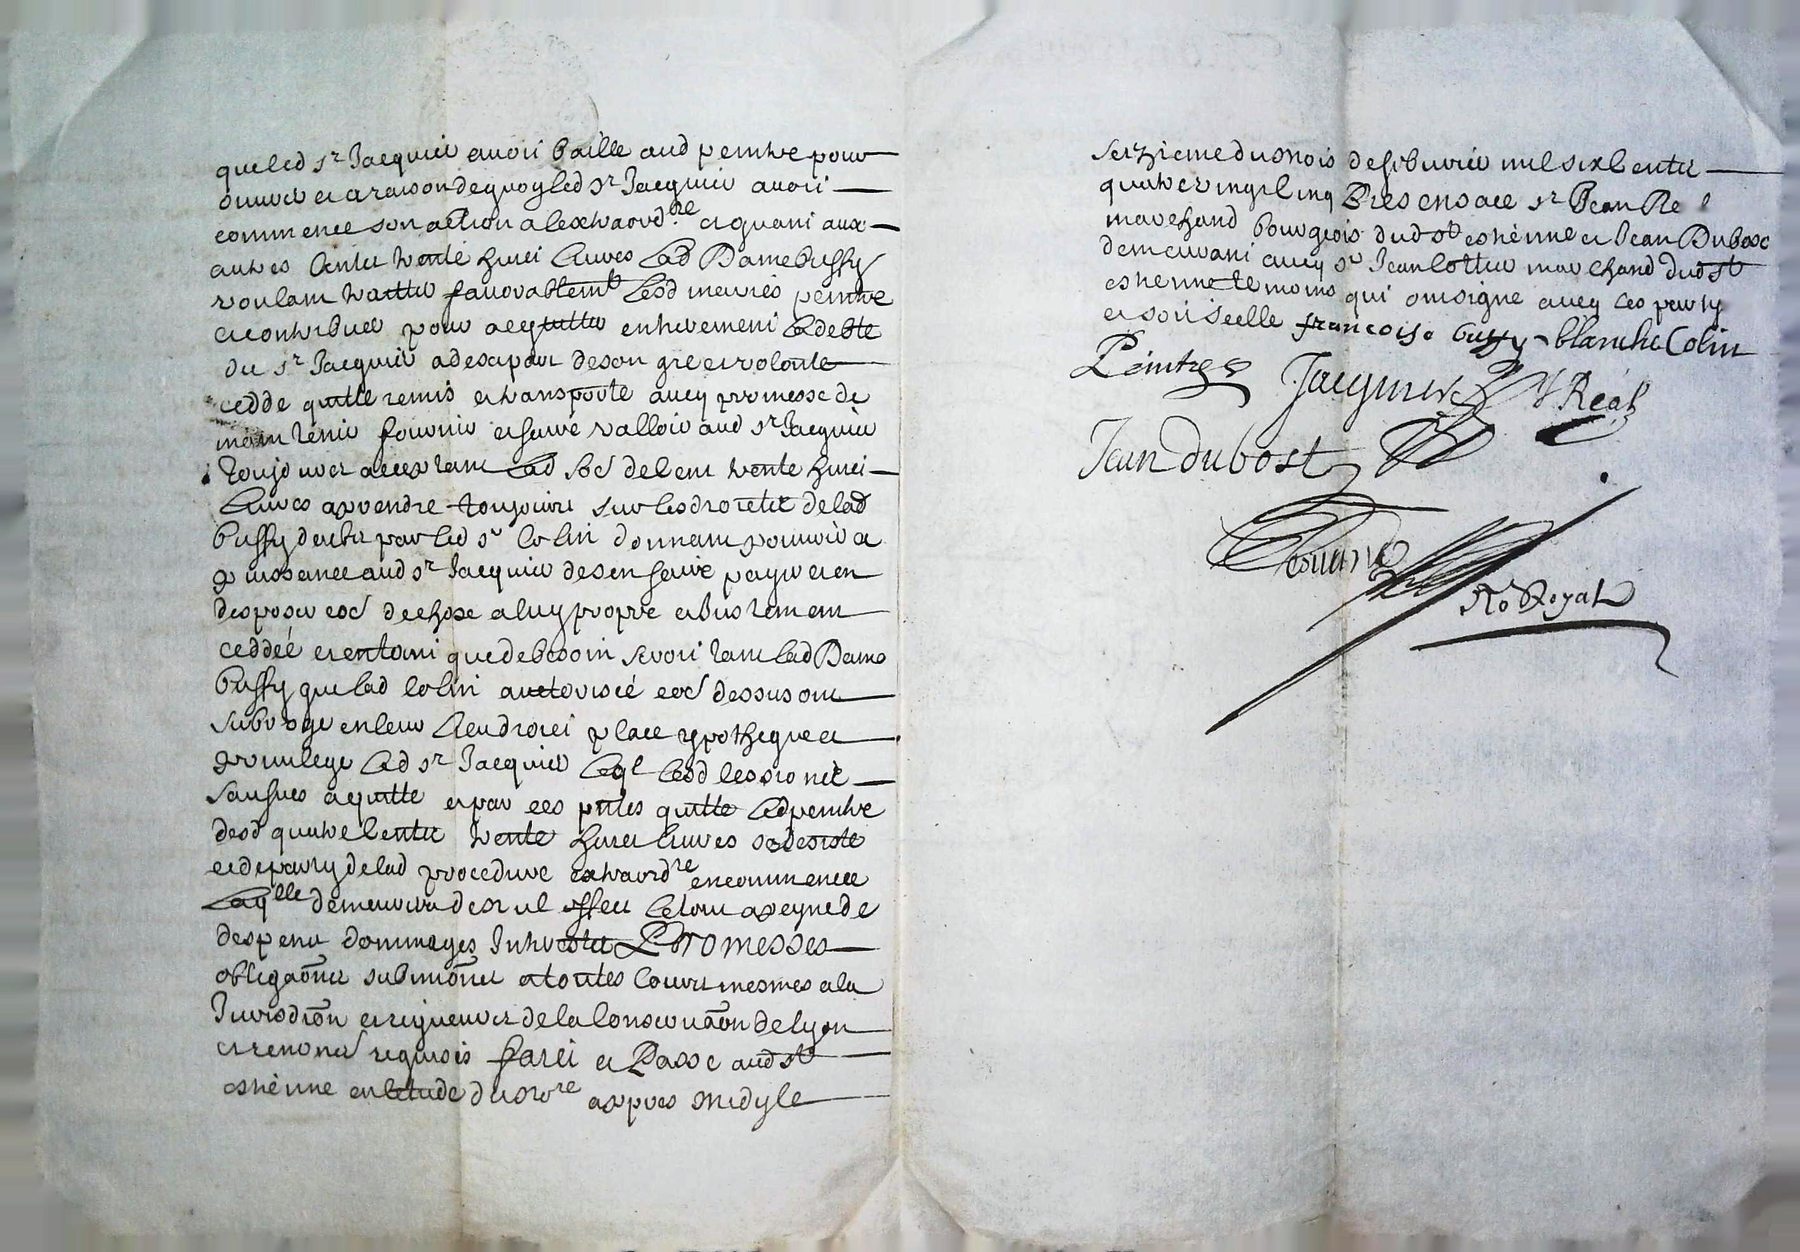 que led sr Jacquier avoit baillé aud peintre pour
ouvrer et a raison de quoy led sr Jacquier avoit
commence son action a lextraordre et quant aux
autres Centz trente huict livres lad Dame bussy
voulant traitter favorablemt lesd mariés peintre
et contribuer pour acquitter entierement la debte
du sr Jacquier a desa part de son gre et volonte
cedde quitte remis et transporte avecq promesse de
maintenir fournir et faire valloir aud sr Jacquier
Toujours acceptant lad soe de cent trente huict
livres a prendre toujours sur les droictz de lad
bussy deubz par led sr Colin donnant pouvoir et
puissance aud sr Jacquier de sen faire payer et en
disposer coe de chose a luy propre et bus
ceddeé et entant que de besoin seroit tant lad Dame
bussy que lad Colin auctorisée coe dessus ont
subroge en leur lieu droict place ypotheque et
privilege led sr Jacquier leql lesd cessionez
sansuès acquitte et par ces pntes quitte led peintre
desd quatre centz trente huict livres se desiste
et depart de lad procedure extraordre encommencee
laqlle demeurera de nul effect le tout a peyne de
despens dommages Interestz Promesses
obligaõns submiõns a toutes Cours mesmes a la
Jurisdiõn et rigueurs de la Conservaõn de lyon
et renoncé requis faict et Passé aud st
estienne en letude du nore apres midy le
seizieme du mois de febvrier mil six centz
quatre vingt cinq Presens a ce sr Jean Re l
marchand bourgeois dud st estienne et Jean Dubosc
demeurant avecq sr Jean Cottier marchand dud st
estienne temoins qui ont signe avecq les party
et soit scellé francoise bussy blanche Colin
Peintre Jacquier Réal
Jean dubost
No Royal